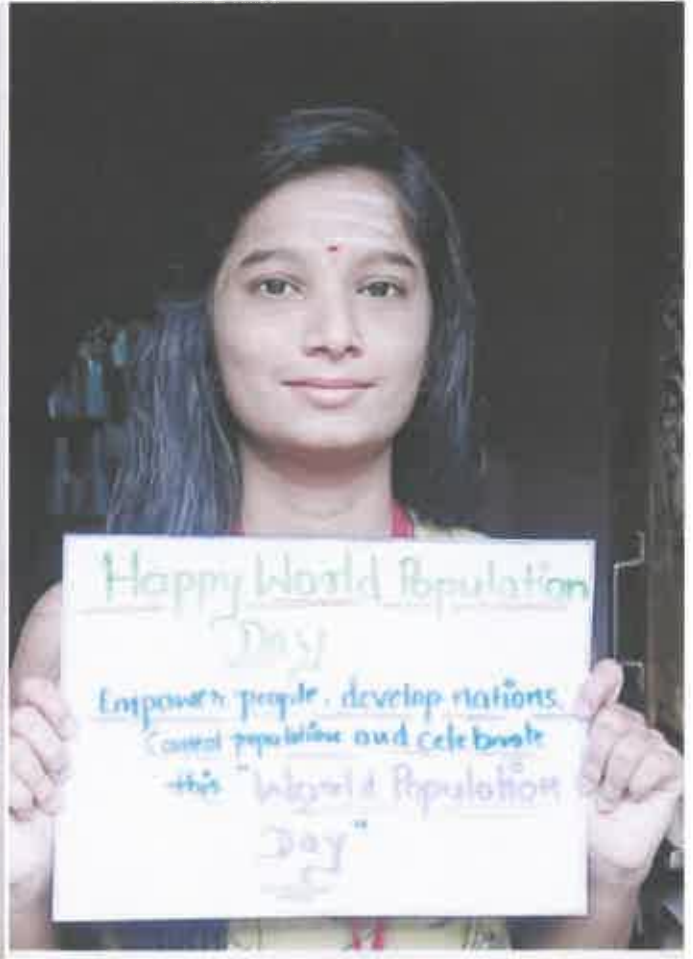 Happy World Population
Day
Empower people, develop nations.
Control population and celebrate
this "World Population
Day"